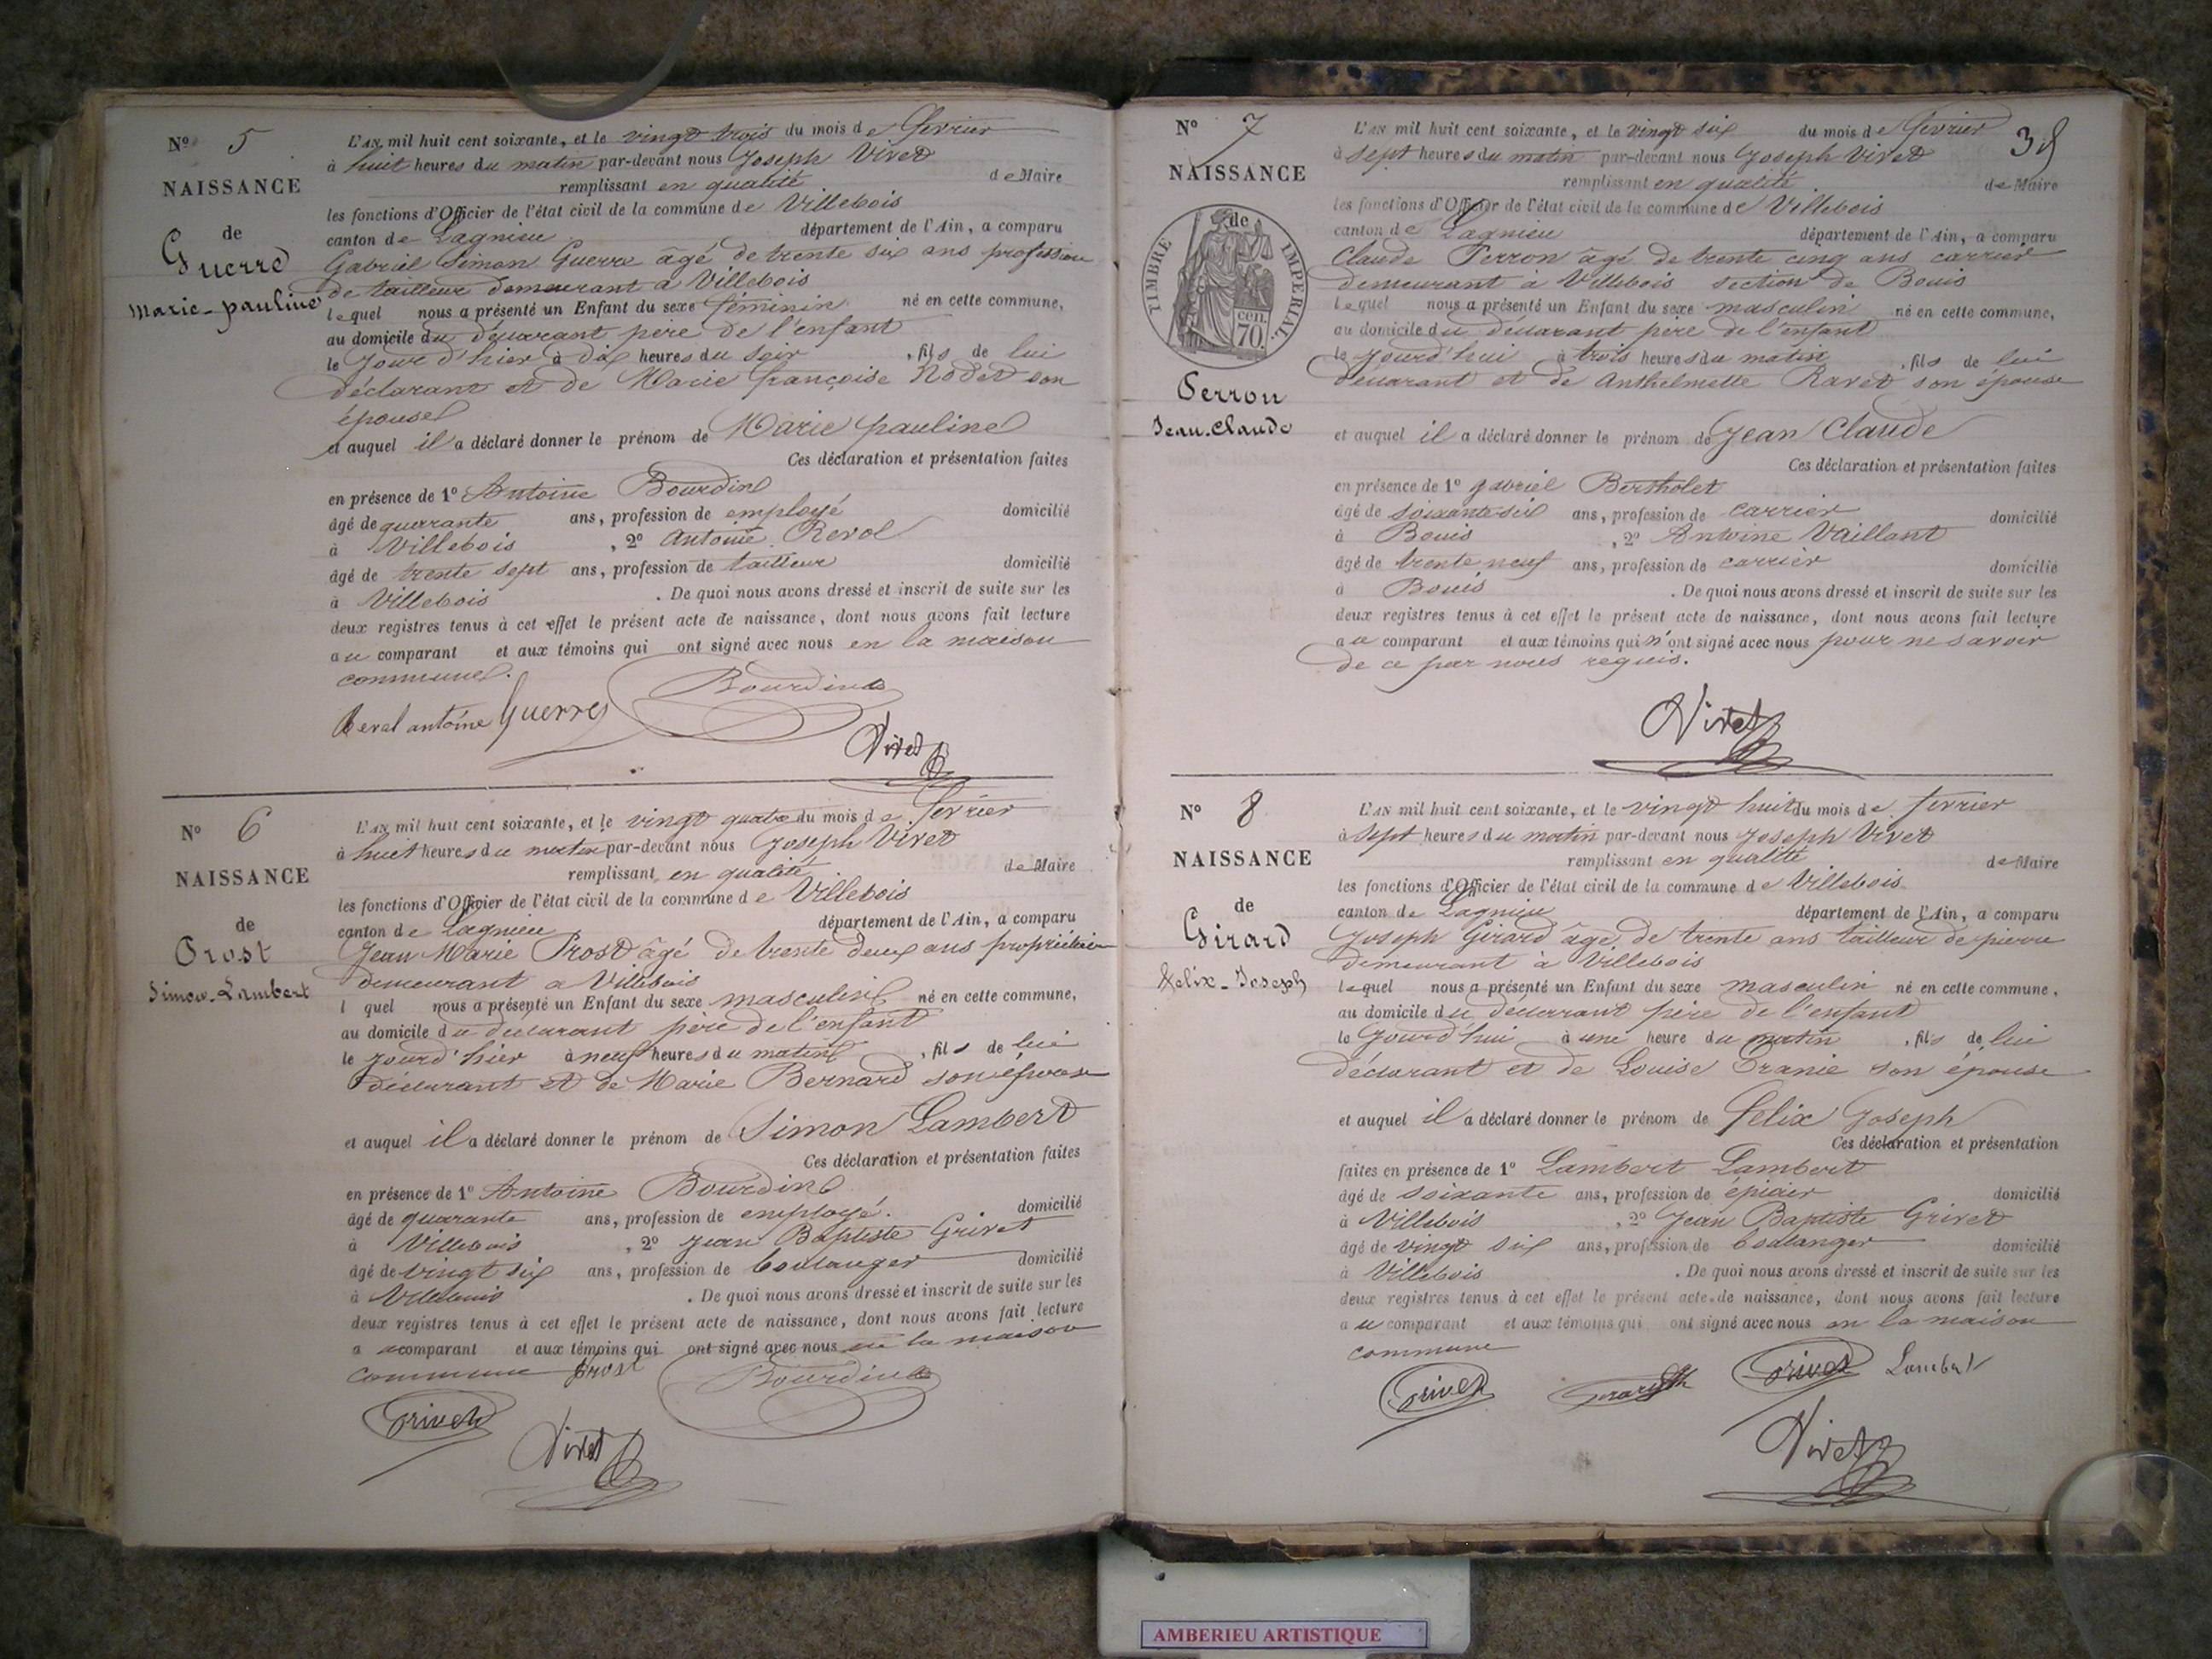 N° 5
NAISSANCE
de
Guerre
Marie-pauline
L'AN mil huit cent soixante, et le vingt trois du mois de fevrier
à huit heures du matin par-devant nous Joseph Vivet
remplissant en qualité de Maire
les fonctions d'Officier de l'état civil de la commune de Villebois
canton de Lagnieu département de l'Ain, a comparu
Gabriel Simon Guerre âgé de trente six ans profession
de tailleur demeurant à Villebois
lequel nous a présenté un Enfant du sexe féminin né en cette commune,
au domicile du déclarant père de l'enfant
le Jour d'hier à dix heures du soir , fils de lui
déclarant et de Marie françoise Nodet son
épouse
et auquel il a déclaré donner le prénom de Marie pauline
Ces déclaration et présentation faites
en présence de 1° Antoine Bourdin
âgé de quarante ans, profession de employé domicilié
à Villebois , 2° Antoine Revol
âgé de trente sept ans, profession de tailleur domicilié
à Villebois . De quoi nous avons dressé et inscrit de suite sur les
deux registres tenus à cet effet le présent acte de naissance, dont nous avons fait lecture
au comparant et aux témoins qui ont signé avec nous en la maison
commune.
Reval antoine Guerre Bourdin
Vivet
N° 6
NAISSANCE
de
Prost
Simon-Lambert
L'AN mil huit cent soixante, et le vingt quatre du mois de fevrier
à huit heures du matin par-devant nous Joseph Vivet
remplissant en qualité de Maire
les fonctions d'Officier de l'état civil de la commune de Villebois
canton de Lagnieu département de l'Ain, a comparu
Jean Marie Prost âgé de trente deux ans propriétaire
demeurant a Villebois
l quel nous a présenté un Enfant du sexe masculin né en cette commune,
au domicile du déclarant père de l'enfant
le jourd'hier à neuf heures du matin , fils de lui
déclarant et de Marie Bernard son épouse
et auquel il a déclaré donner le prénom de Simon Lambert
Ces déclaration et présentation faites
en présence de 1° Antoine Bourdin
âgé de quarante ans, profession de employé. domicilié
à Villebois , 2° Jean Baptiste Grivet
âgé de vingt six ans, profession de boulanger domicilié
à Villebois . De quoi nous avons dressé et inscrit de suite sur les
deux registres tenus à cet effet le présent acte de naissance, dont nous avons fait lecture
au comparant et aux témoins qui ont signé avec nous en la maison
commune Prost Bourdin
Grivet
Vivet
N° 7
NAISSANCE
de
TIMBRE IMPERIAL
70 cen.
Perron
Jean-Claude
L'AN mil huit cent soixante, et le vingt six du mois de fevrier
à sept heures du matin par-devant nous Joseph Vivet
remplissant en qualité de Maire
les fonctions d'Officier de l'état civil de la commune de Villebois
canton de Lagnieu département de l'Ain, a comparu
Claude Perron âgé de trente cinq ans carrier
demeurant à Villebois section de Bouis
lequel nous a présenté un Enfant du sexe masculin né en cette commune,
au domicile du déclarant père de l'enfant
le jourd'hui à trois heures du matin , fils de lui
déclarant et de Anthelmette Ravet son épouse
et auquel il a déclaré donner le prénom de Jean Claude
Ces déclaration et présentation faites
en présence de 1° gabriel Bertholet
âgé de soixante six ans, profession de carrier domicilié
à Bouis , 2° Antoine Vaillant
âgé de trente neuf ans, profession de carrier domicilié
à Bouis . De quoi nous avons dressé et inscrit de suite sur les
deux registres tenus à cet effet le présent acte de naissance, dont nous avons fait lecture
au comparant et aux témoins qui n'ont signé avec nous pour ne savoir
de ce par nous requis.
Vivet
N° 8
NAISSANCE
de
Girard
Felix-Joseph
L'AN mil huit cent soixante, et le vingt huit du mois de fevrier
à sept heures du matin par-devant nous Joseph Vivet
remplissant en qualité de Maire
les fonctions d'Officier de l'état civil de la commune de Villebois
canton de Lagnieu département de l'Ain, a comparu
Joseph Girard âgé de trente ans tailleur de pierre
demeurant à Villebois
lequel nous a présenté un Enfant du sexe masculin né en cette commune,
au domicile du déclarant père de l'enfant
le Jourd'hui à une heure du matin , fils de lui
déclarant et de Louise Cranie son épouse
et auquel il a déclaré donner le prénom de Felix Joseph
Ces déclaration et présentation
faites en présence de 1° Lambert Lambert
âgé de soixante ans, profession de épicier domicilié
à Villebois , 2° Jean Baptiste Grivet
âgé de vingt six ans, profession de boulanger domicilié
à Villebois . De quoi nous avons dressé et inscrit de suite sur les
deux registres tenus à cet effet le présent acte de naissance, dont nous avons fait lecture
au comparant et aux témoins qui ont signé avec nous en la maison
commune
Grivet Grivet Lambert
Vivet
AMBERIEU ARTISTIQUE